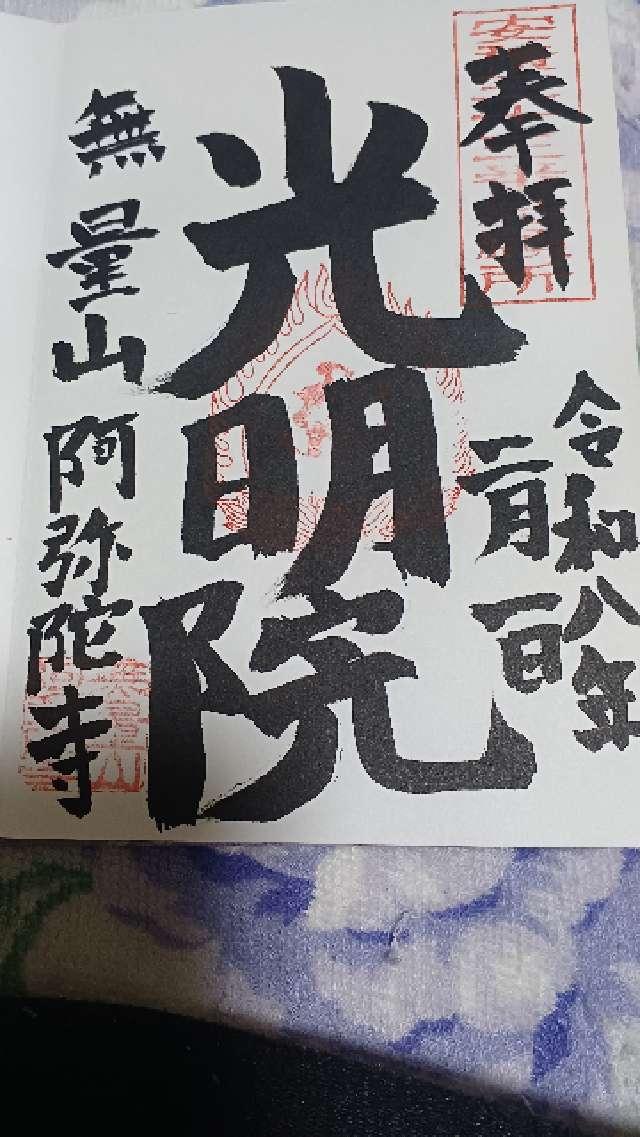 奉拝
令和八年
二月一日
光明院
無量山阿弥陀寺